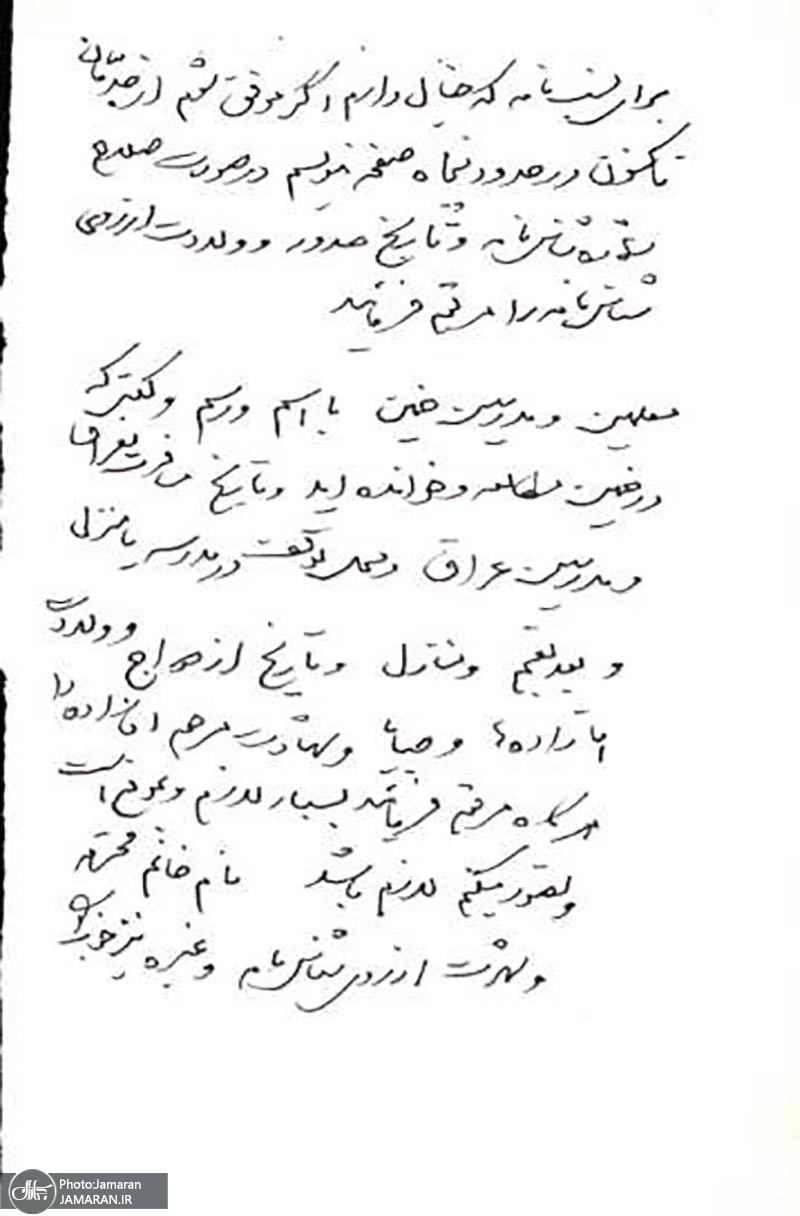 برای نسب نامه که خیال دارم اگر موفق شوم از جدّمان
تاکنون در حدود پنجاه صفحه بنویسم در صورت صلاح
شماره شناسنامه و تاریخ صدور و ولادت از روی
شناسنامه را مرقوم فرمائید
معلمین و مدرسین خمین با اسم و رسم و کتبی که
در خمین مطالعه و خوانده اید و تاریخ مسافرت به عراق
و مدرسین عراق و محل توقف در مدرسه یا منزل
و بعد بقم و منازل و تاریخ ازدواج و ولادت
آقازاده‌ها و صبایا و شهادت مرحوم آقازاده را
مرقوم فرمائید بسیار لازم و بموقع است
و تصور میکنم لازم باشد نام خانم محترمه
و شهرت از روی شناسنامه و غیره نیز خوب است
Photo:Jamaran
JAMARAN.IR